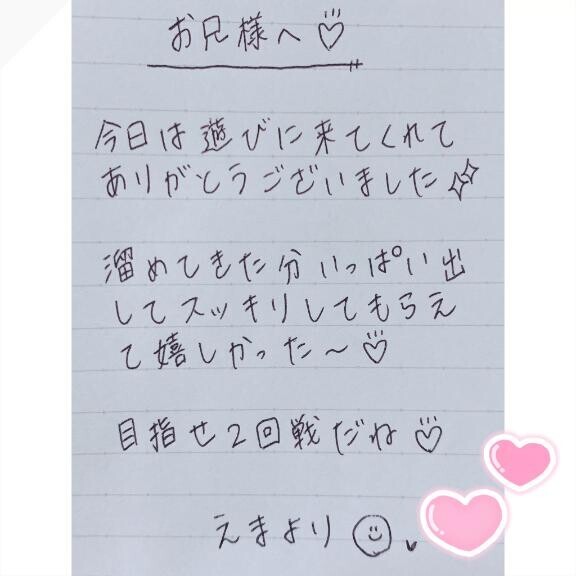 お兄様へ♡
今日は遊びに来てくれて
ありがとうございました✨
溜めてきた分いっぱい出
してスッキリしてもらえ
て嬉しかった〜♡
目指せ2回戦だね♡
えまより☺